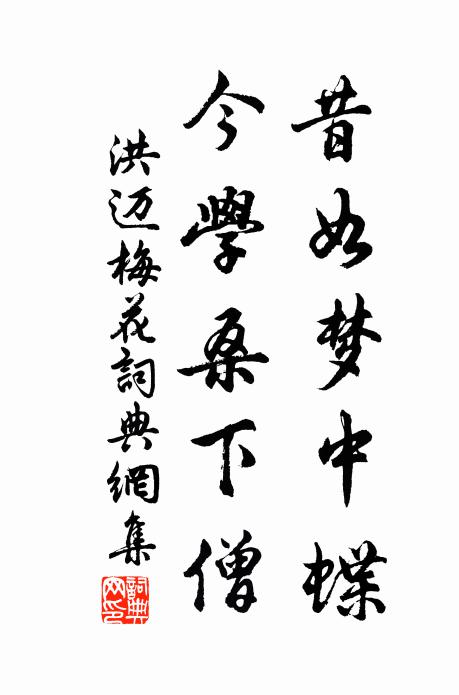 昔如梦中蝶
今學桑下僧
洪迈梅花詞典網集
詞典网印